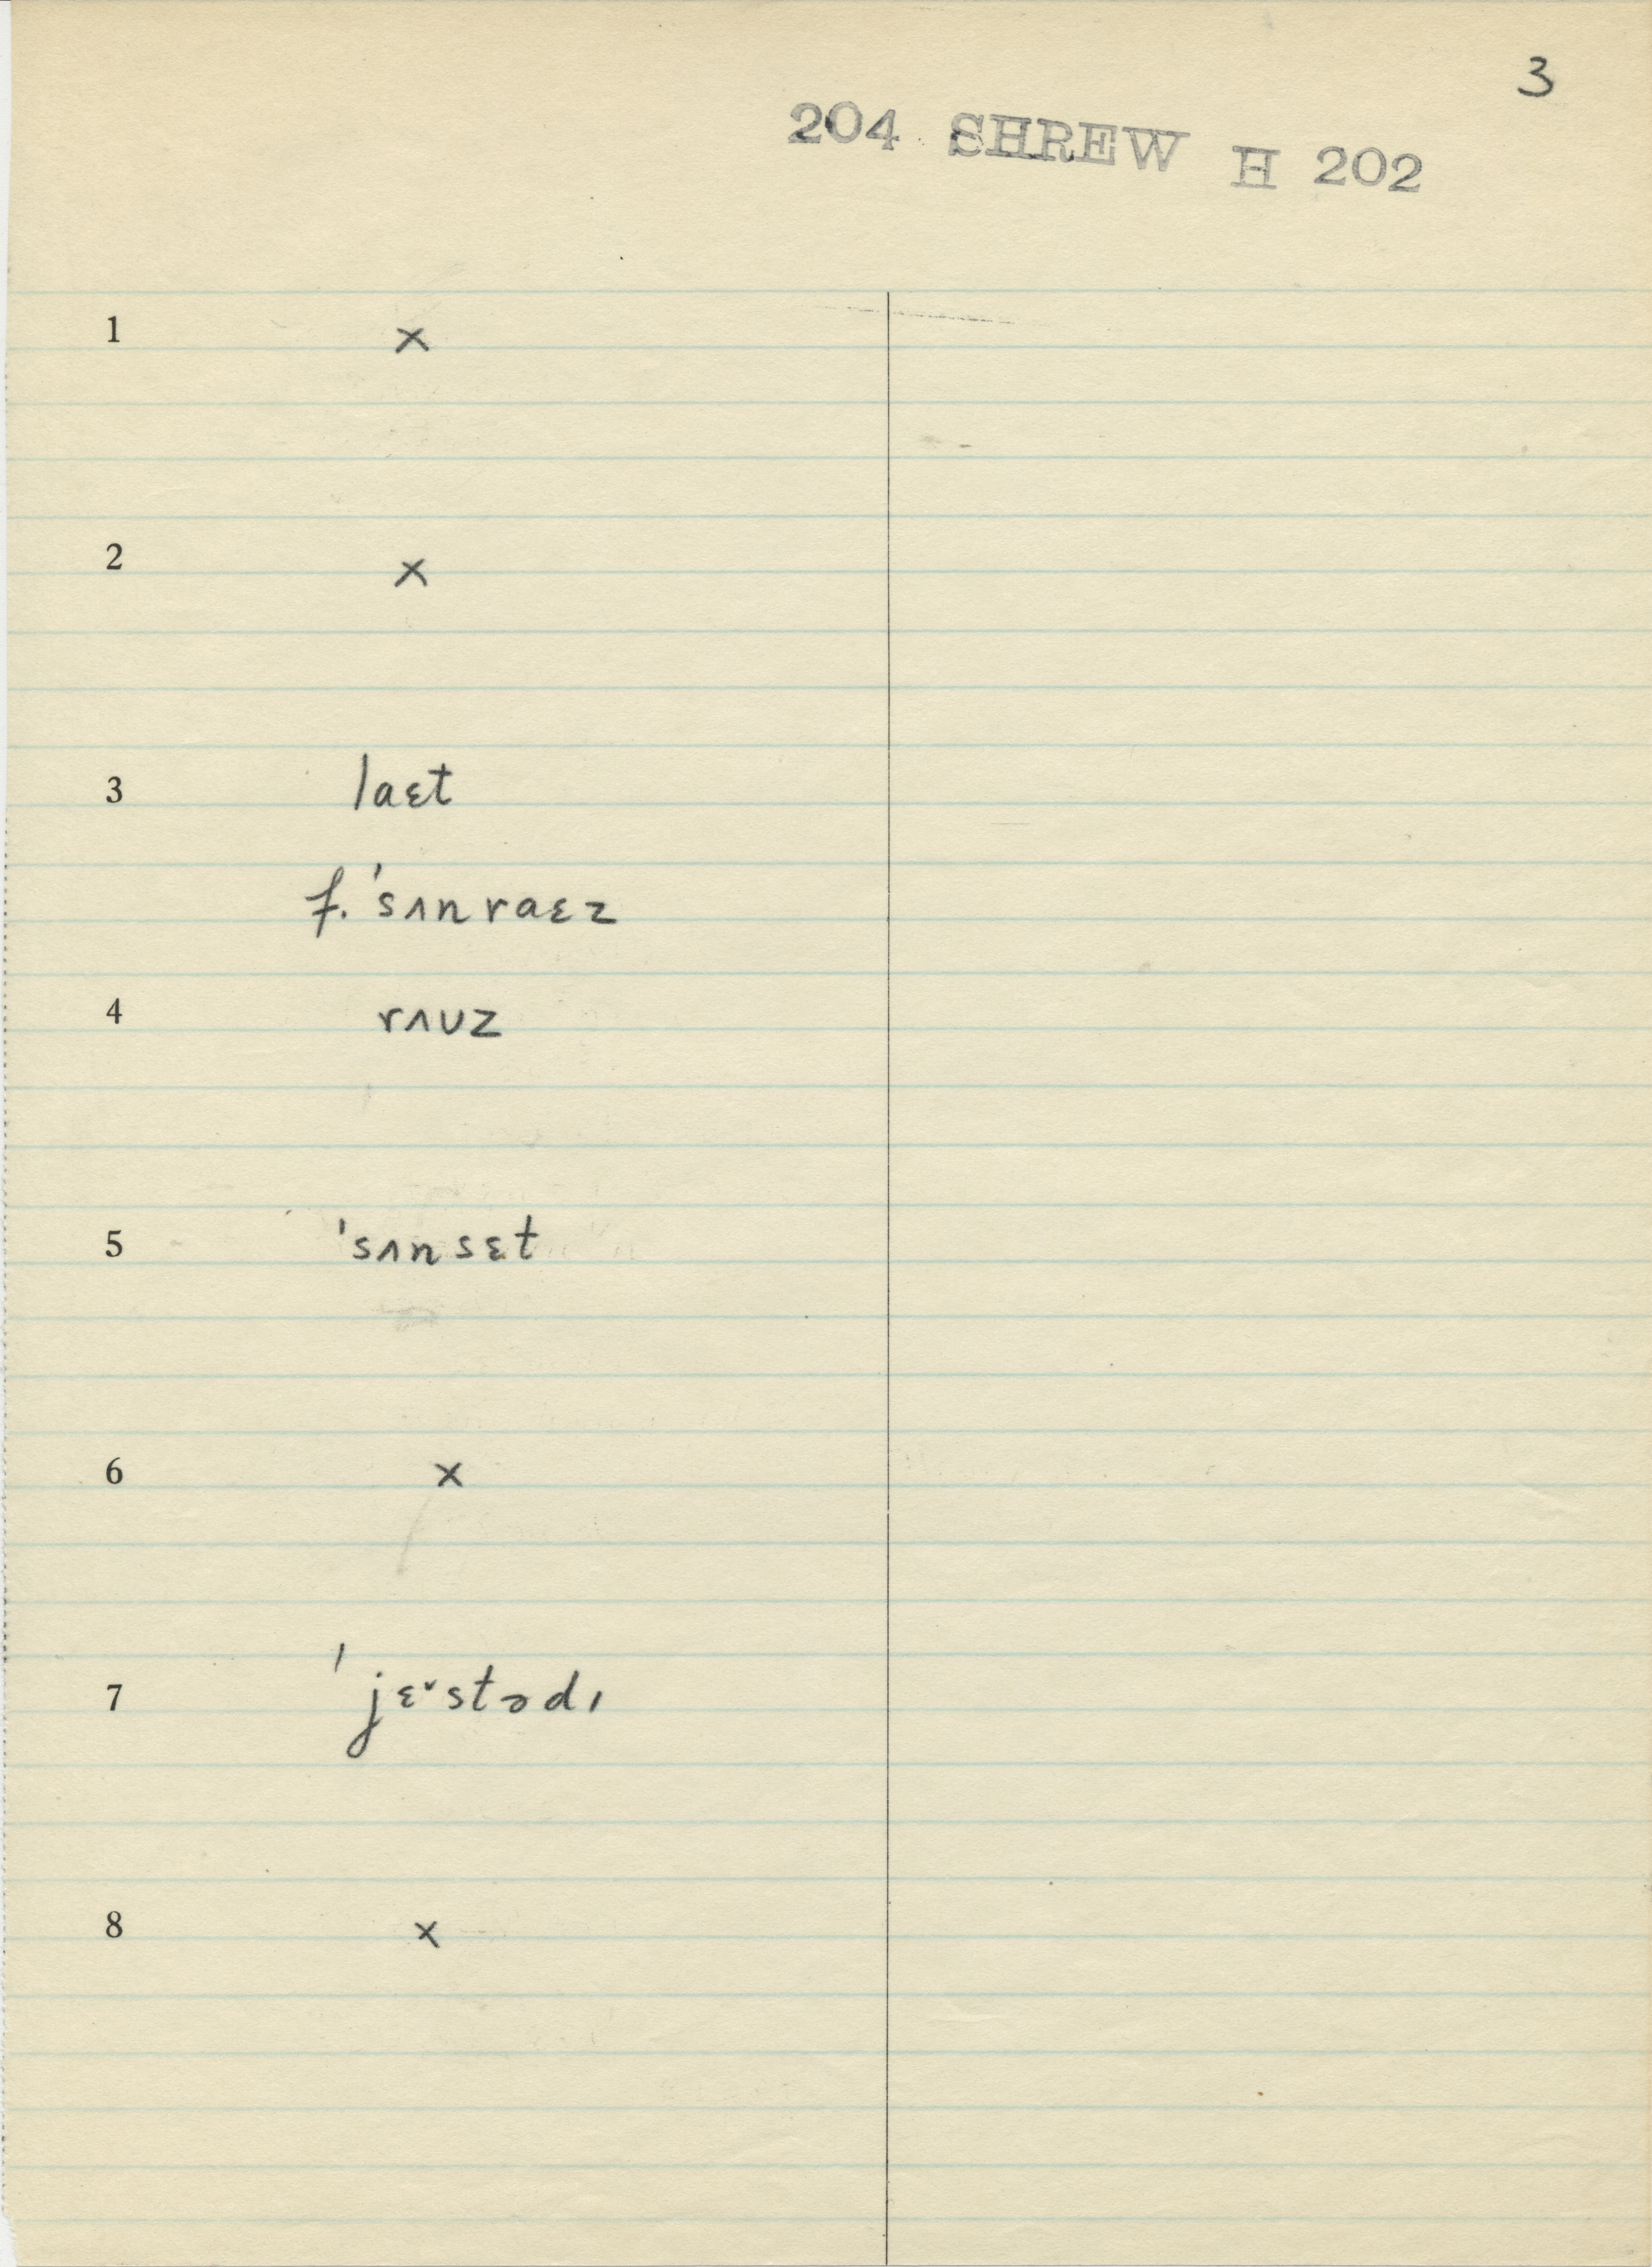 3
204 SHREW H 202
1 ×
2 ×
3 laɛt
f. ˈsʌnraɛz
4 rʌʊz
5 ˈsʌnsɛt
6 ×
7 ˈjɛ˅stədɪ
8 ×